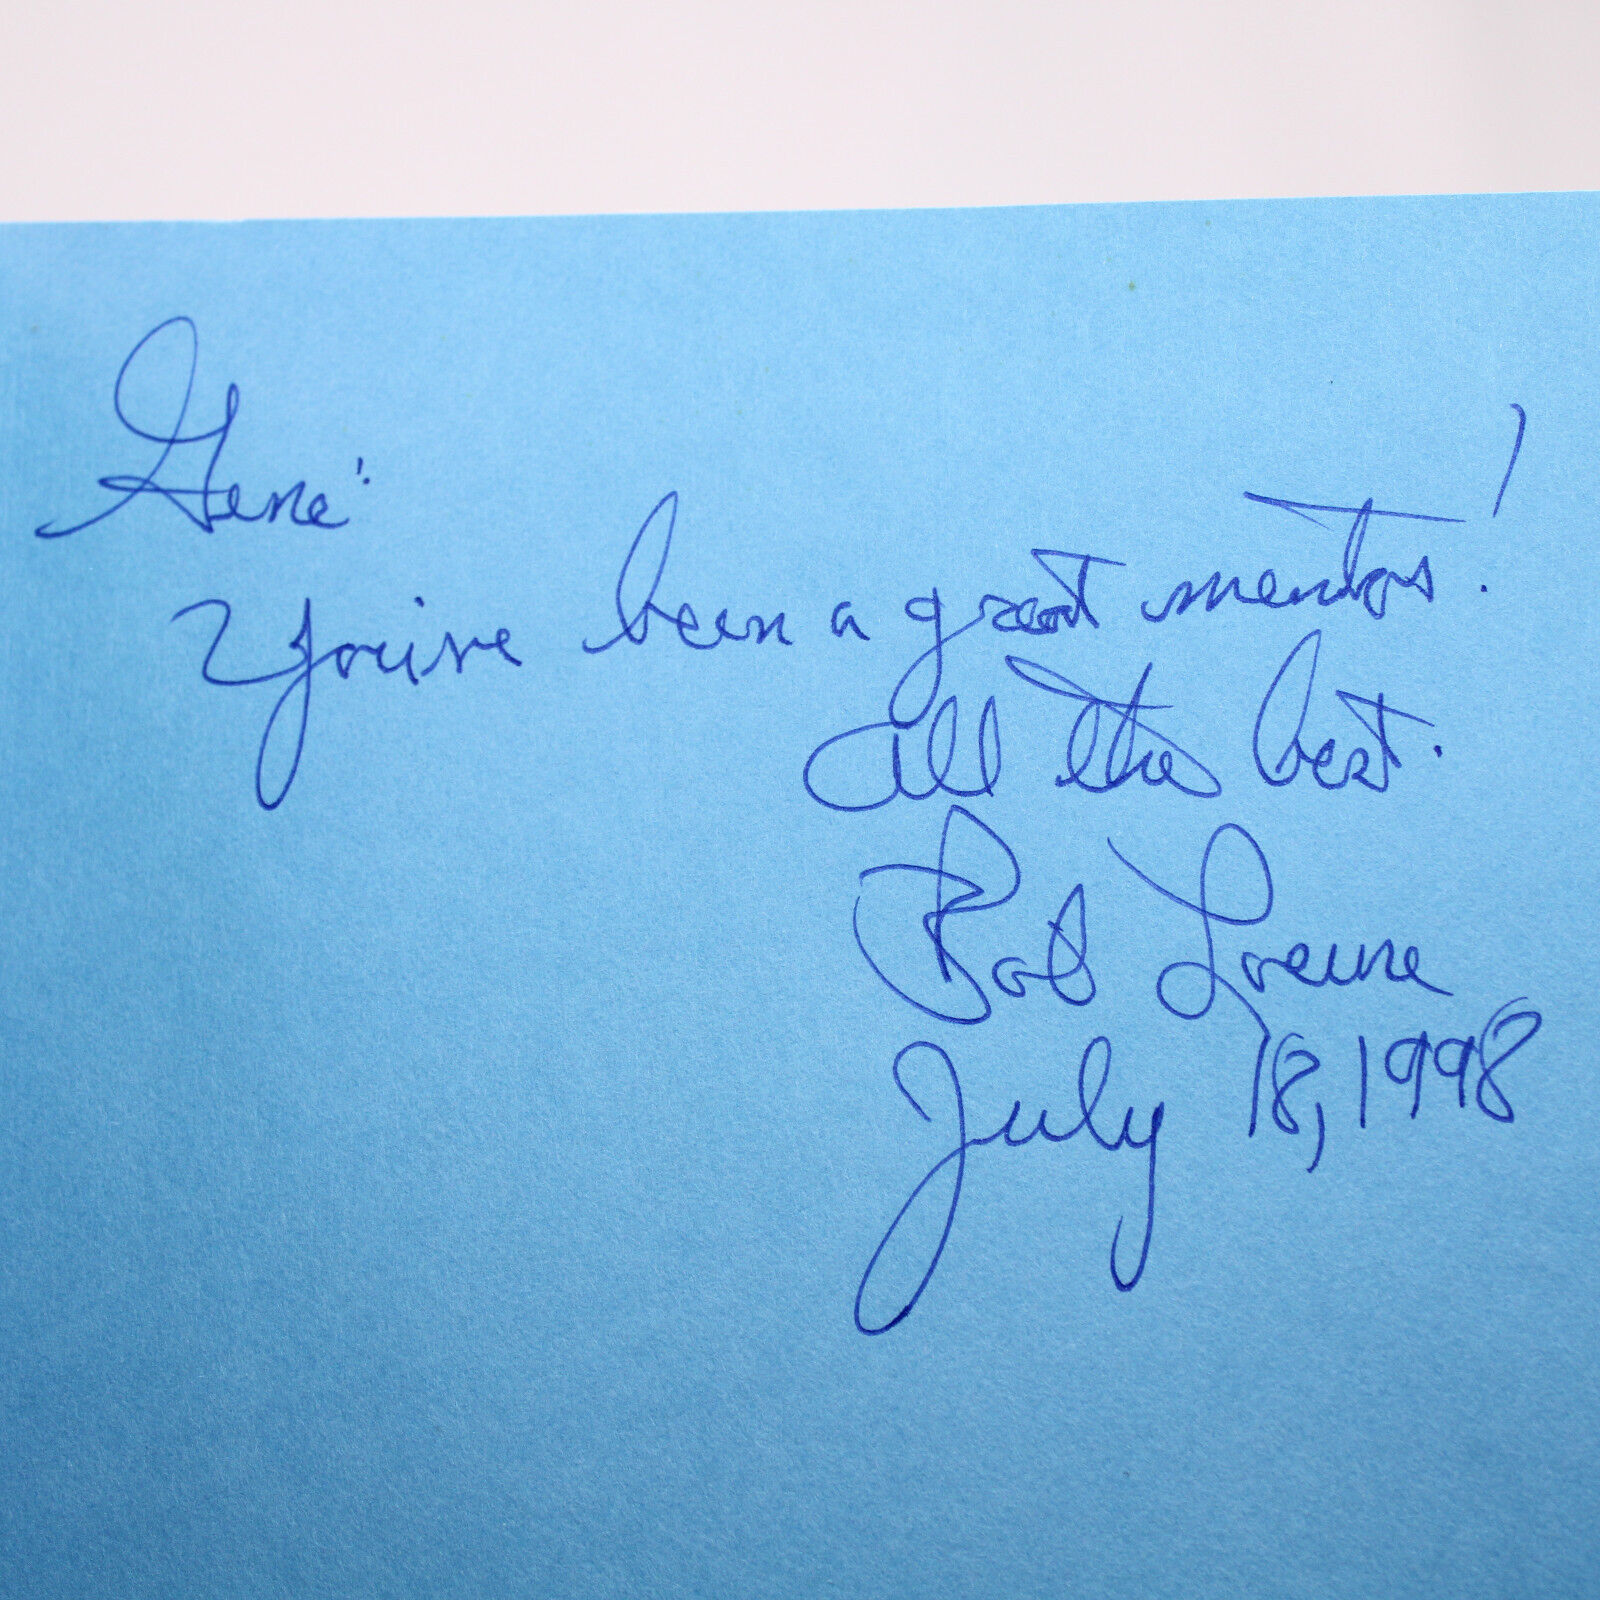 Gene:
You've been a great mentor!
All the best.
Bob
July 18, 1998